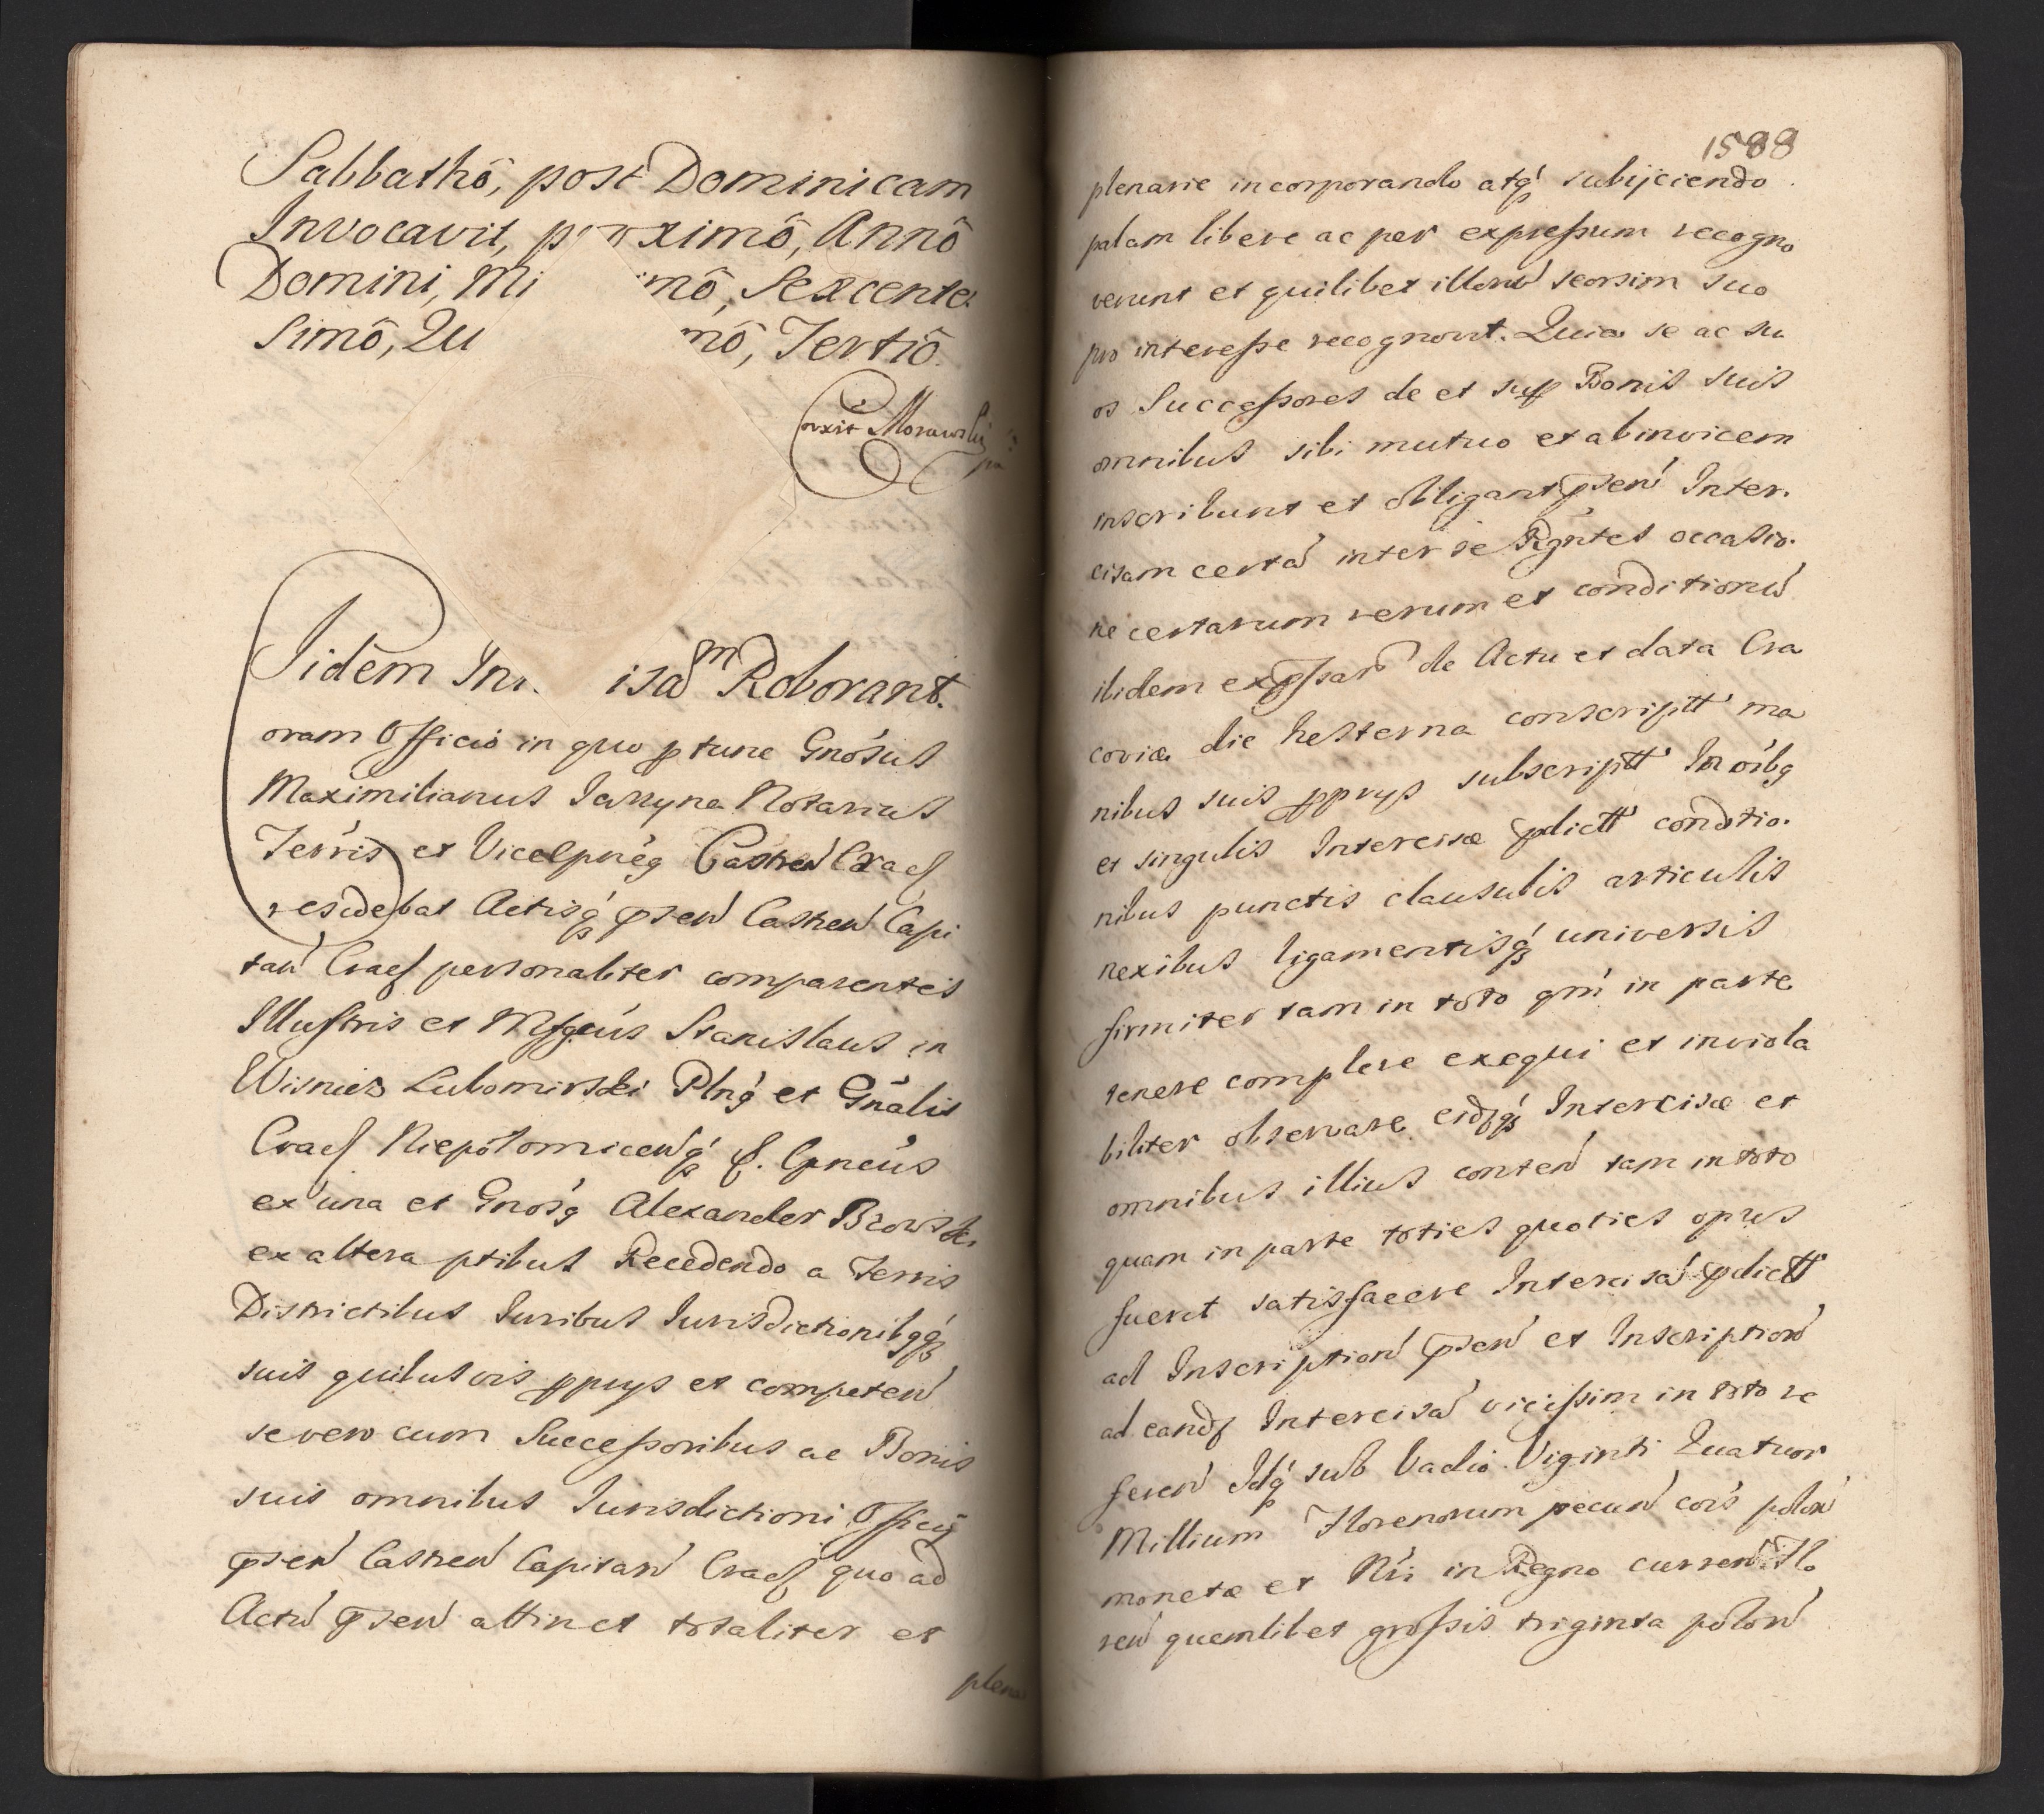 Sabbathô, post Dominicam
Invocavit, proximô, Annô
Domini, Mi mô, Sexcente
simô, Qu mô, Tertiô.
Corxit Morawski
mp
Iidem Int isãm Roborant.
oram Officio in quo ptunc Gnósus
Maximilianus Jarzyna Notarius
Terris et Vice
residebat Actisq́ pseñ Castreñ Capi
tañ Cracˢ personaliter comparentes
Illustris et Mgcus Stanislaus in
Wisnicz Lubomirski Plnq́ et Gnãlis
Cracˢ Niepołomiceñq́ &. Cpneús
ex una et Gnósq Alexander Brows
ex altera ptibus Recedendo a Terris
Districtibus Iuribus Iurisdictionibqq́
suis quibusvis pprys et competeñ
se vero cum Successoribus ac Bonis
suis omnibus Iurisdictioni Officij
pseñ Castreñ Capitañ Cracˢ quo ad
Actũ pseñ attinet totaliter et
plena
1588
plenarie incorporando atq́ subijciendo
palam libere ac per expressum recogno
verunt et quilibet illorũ seorsim suo
pro interesse recognovit. Quia se ac su
os Successores de et sup Bonis suis
omnibus sibi mutuo et ab invicem
inscribunt et obligant pseñ Inter.
cisam certã inter se Rgñtes occasio.
ne certarum rerum et conditionũ
ibidem expssar̃ de Actu et data Cra
coviæ die hesterna conscriptt ma
nibus suis pprys subscriptt In oíbq
et singulis Intercisæ pdictt conditio.
nibus punctis clausulis articulis
nexibus ligamentisq́ universis
firmiter tam in toto qm̃ in parte
tenere complere exequi et inviola
biliter observare eidq́ Intercisæ et
omnibus illius conteñ tam in toto
quam in parte toties quoties opus
fuerit satisfacere Intercisã pdictt
ad Inscriptioñ pseñ et Inscriptioñ
ad eandˢ Intercisã vicissim in toto re
fereñ Idq́ sub Vadio Viginti Quatuor
Millium Florenorum pecuñ coís poloñ
monetæ et Nrí in Regno curreñ Flo
reñ quemlibet grossis triginta poloñ